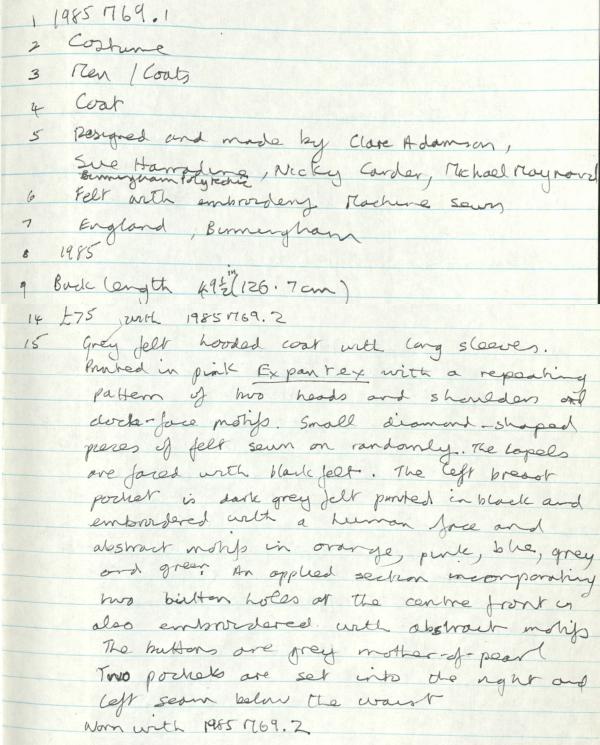 1 1985 M69.1
2 Costume
3 Men / Coats
4 Coat
5 Designed and made by Clare Adamson,
Sue Harradine, Nicky Carder, Michael Maynard
Birmingham Polytechnic
6 Felt with embroidery Machine sewn
7 England, Birmingham
8 1985
9 Back length 49½ in (126.7cm)
14 £75 with 1985 M69.2
15 Grey felt hooded coat with long sleeves.
Printed in pink Expantex with a repeating
pattern of two heads and shoulders and
clock-face motifs. Small diamond-shaped
pieces of felt sewn on randomly. The lapels
are faced with black felt. The left breast
pocket is dark grey felt printed in black and
embroidered with a human face and
abstract motifs in orange, pink, blue, grey
and green. An applied section incorporating
two button holes at the centre front is
also embroidered with abstract motifs
The buttons are grey mother-of-pearl
Two pockets are set into the right and
left seam below the waist
Worn with 1985 M69.2